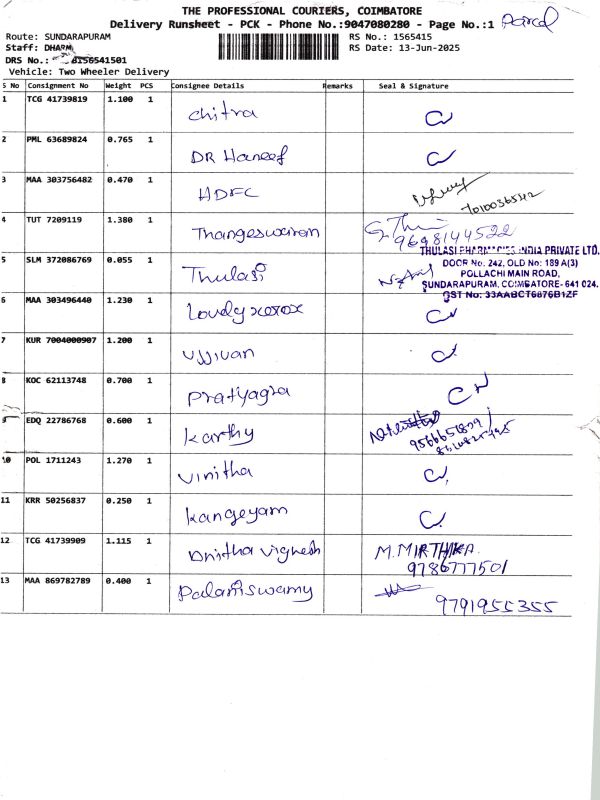 THE PROFESSIONAL COURIERS, COIMBATORE
Delivery Runsheet - PCK - Phone No.:9047080280 - Page No.:1 Parcel
Route: SUNDARAPURAM RS No.: 1565415
Staff: DHARM RS Date: 13-Jun-2025
DRS No.: 8156541501
Vehicle: Two Wheeler Delivery
S No Consignment No Weight PCS Consignee Details Remarks Seal & Signature
1 TCG 41739819 1.100 1 chitra
2 PML 63689824 0.765 1 DR Haneef
3 MAA 303756482 0.470 1 HDFC
4 TUT 7209119 1.380 1 Thangeswaram 9698144522
5 SLM 372086769 0.055 1 Thulasi
THULASI PHARMACIES INDIA PRIVATE LTD.
DOOR No. 242, OLD No: 189 A(3)
POLLACHI MAIN ROAD,
SUNDARAPURAM, COIMBATORE- 641 024.
GST No: 33AABCT6876B1ZF
6 MAA 303496440 1.230 1 Loudy xerox
7 KUR 7004000907 1.200 1 ujjivan
8 KOC 62113748 0.700 1 Pratyagra
9 EDQ 22786768 0.600 1 karthy
10 POL 1711243 1.270 1 vinitha
11 KRR 50256837 0.250 1 kangeyam
12 TCG 41739909 1.115 1 Dnitha vignesh M.MIRTHIKA.
9786777501
13 MAA 869782789 0.400 1 Palaniswamy
9791955355